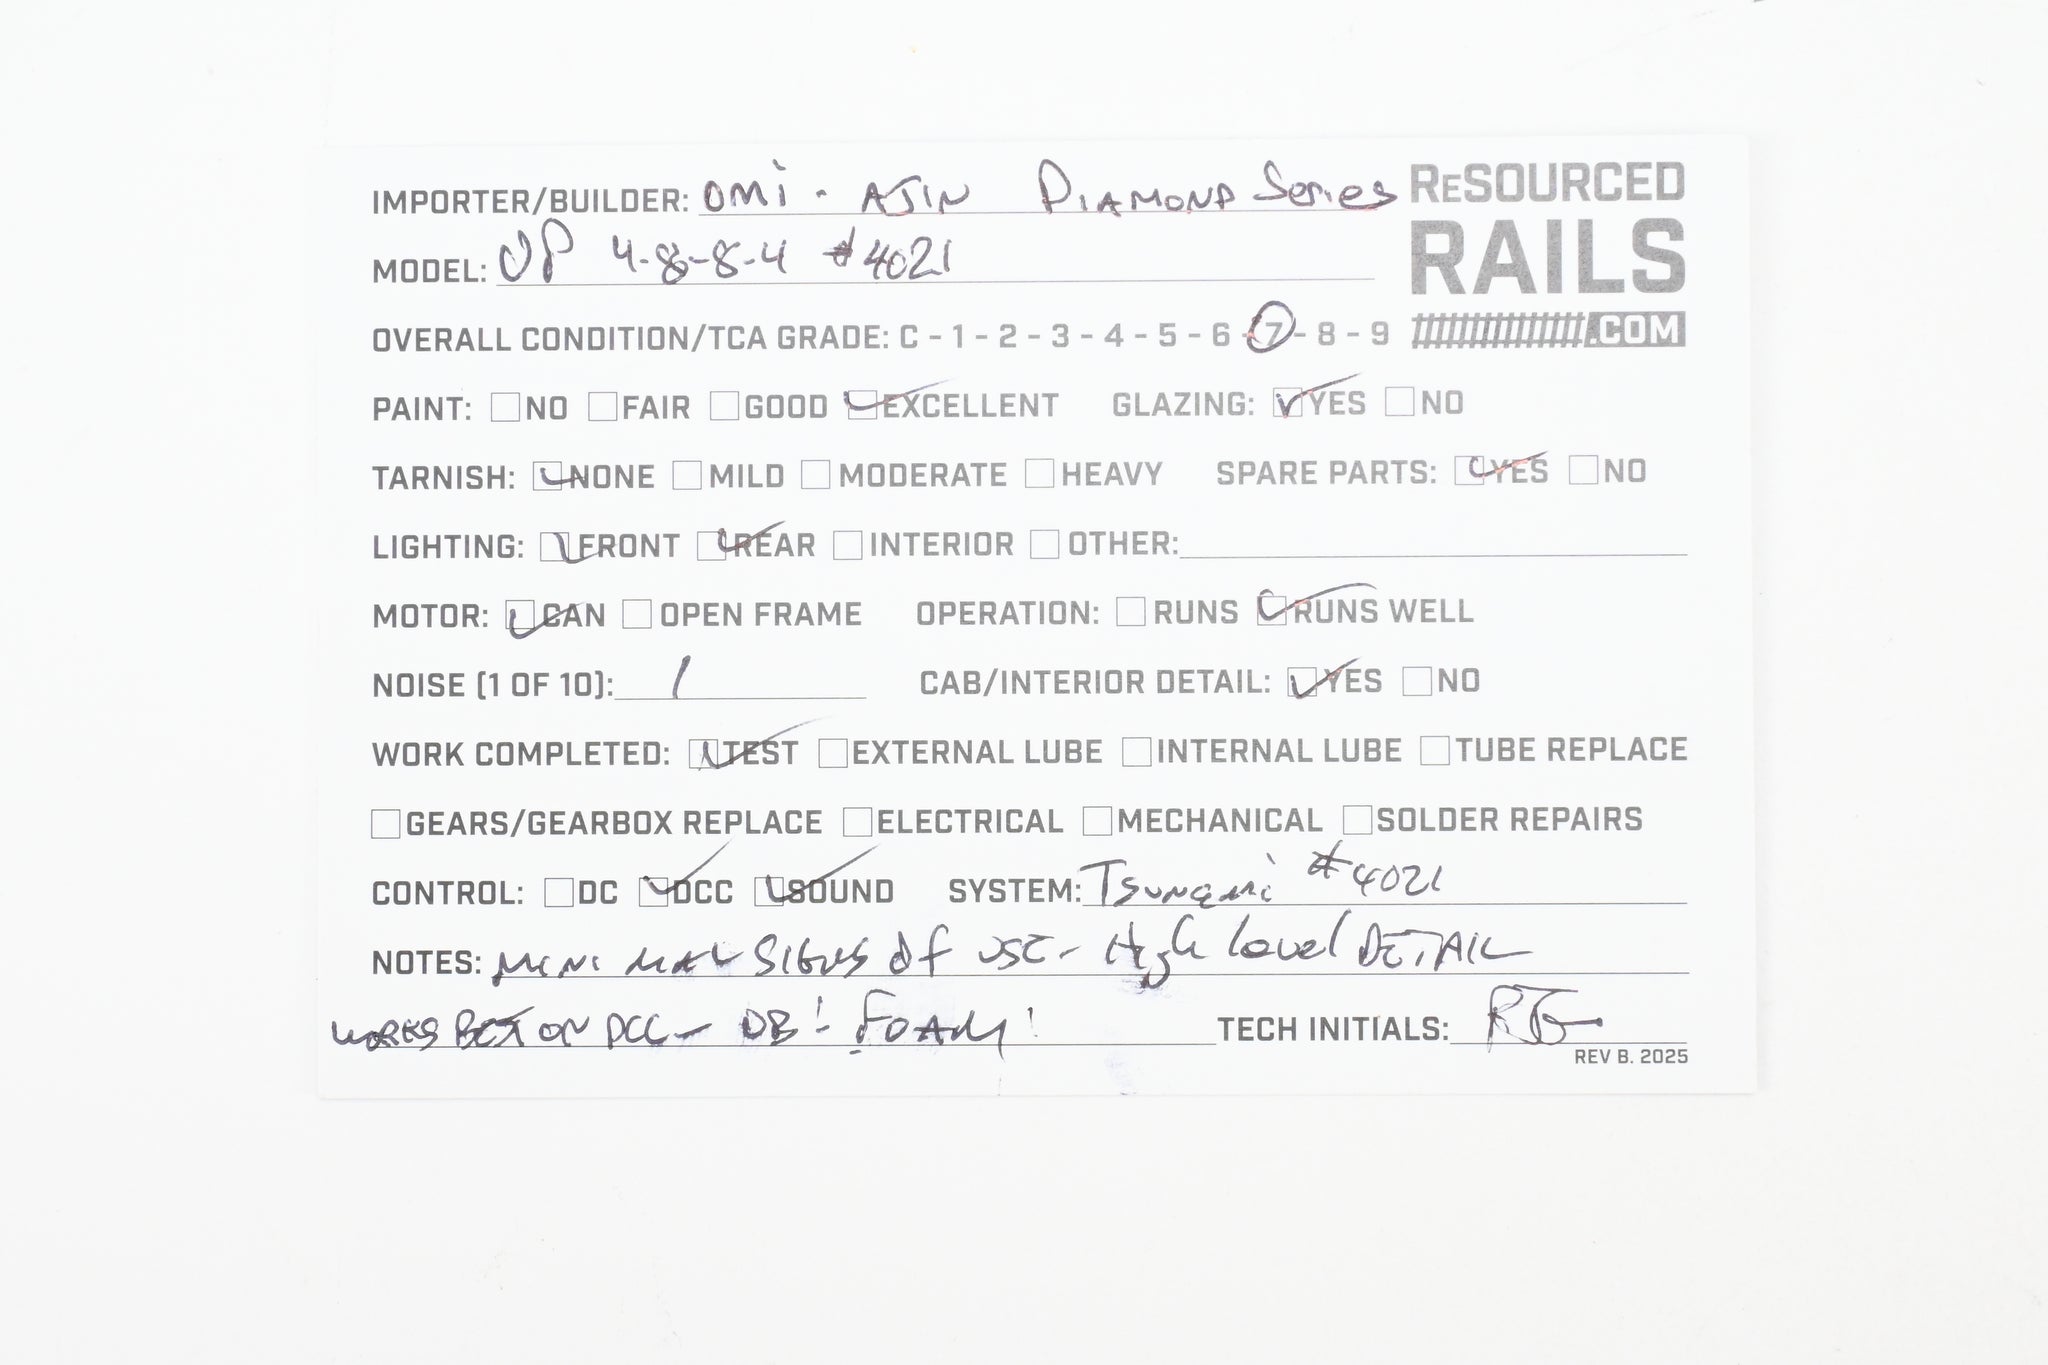 IMPORTER/BUILDER: OMI - AJIN DIAMOND Series
ReSOURCED
RAILS
.COM
MODEL: UP 4-8-8-4 #4021
OVERALL CONDITION/TCA GRADE: C - 1 - 2 - 3 - 4 - 5 - 6 - 7 - 8 - 9
PAINT: NO FAIR GOOD EXCELLENT GLAZING: YES NO
TARNISH: NONE MILD MODERATE HEAVY SPARE PARTS: YES NO
LIGHTING: FRONT REAR INTERIOR OTHER:
MOTOR: CAN OPEN FRAME OPERATION: RUNS RUNS WELL
NOISE (1 OF 10): 1 CAB/INTERIOR DETAIL: YES NO
WORK COMPLETED: TEST EXTERNAL LUBE INTERNAL LUBE TUBE REPLACE
GEARS/GEARBOX REPLACE ELECTRICAL MECHANICAL SOLDER REPAIRS
CONTROL: DC DCC SOUND SYSTEM: Tsunami #4021
NOTES: MINIMAL SIGNS OF USE - High level DETAIL
WORKS BEST ON DCC - OB! FOAM! TECH INITIALS:
REV B. 2025